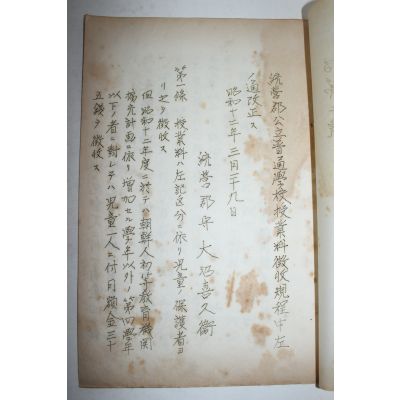 統営郡公立普通學校授業料徵收規程中左
ノ通改正ス
昭和十二年三月二十九日
統営郡守 大沼喜久衛
第一條 授業料ハ左記区分ニ依リ児童ノ保護者ヨ
リ之ヲ徴收ス
但昭和十二年度ニ於テハ朝鮮人初等教育機関
拡充計画ニ依リ増加セル學年以外ノ第四學年
以下ノ者ニ對シテハ児童一人ニ付月額金三十
五錢ヲ徴收ス